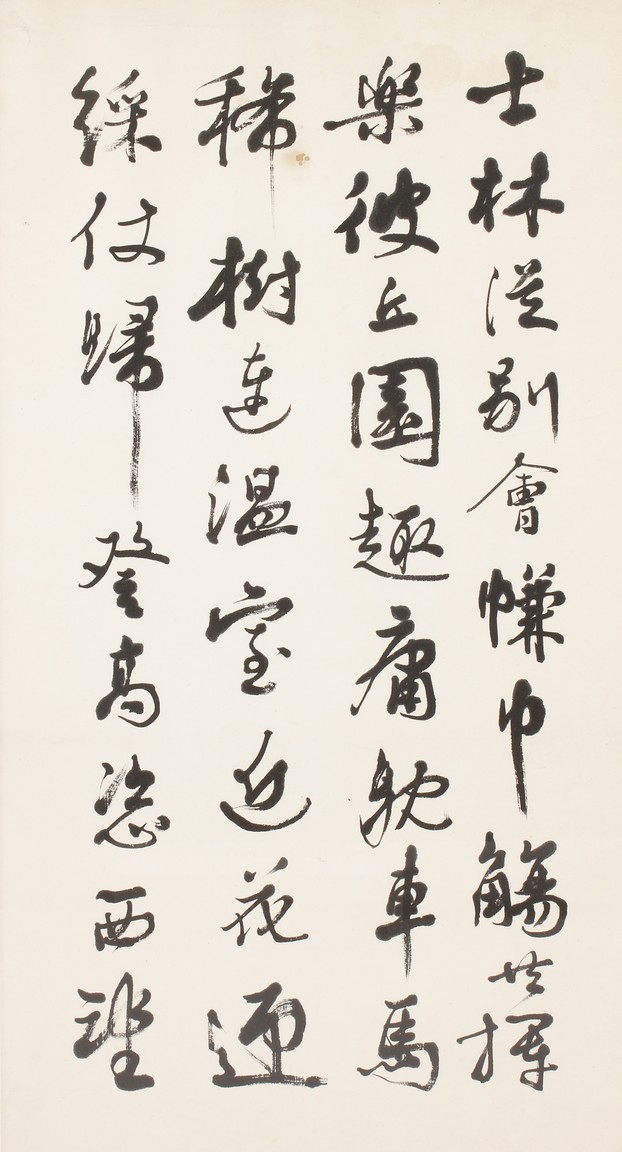 士林從別會㡘巾觴共揮
樂彼丘園趣庸耽車馬
稀樹連溫室近花迎
綵仗歸登高恣西望